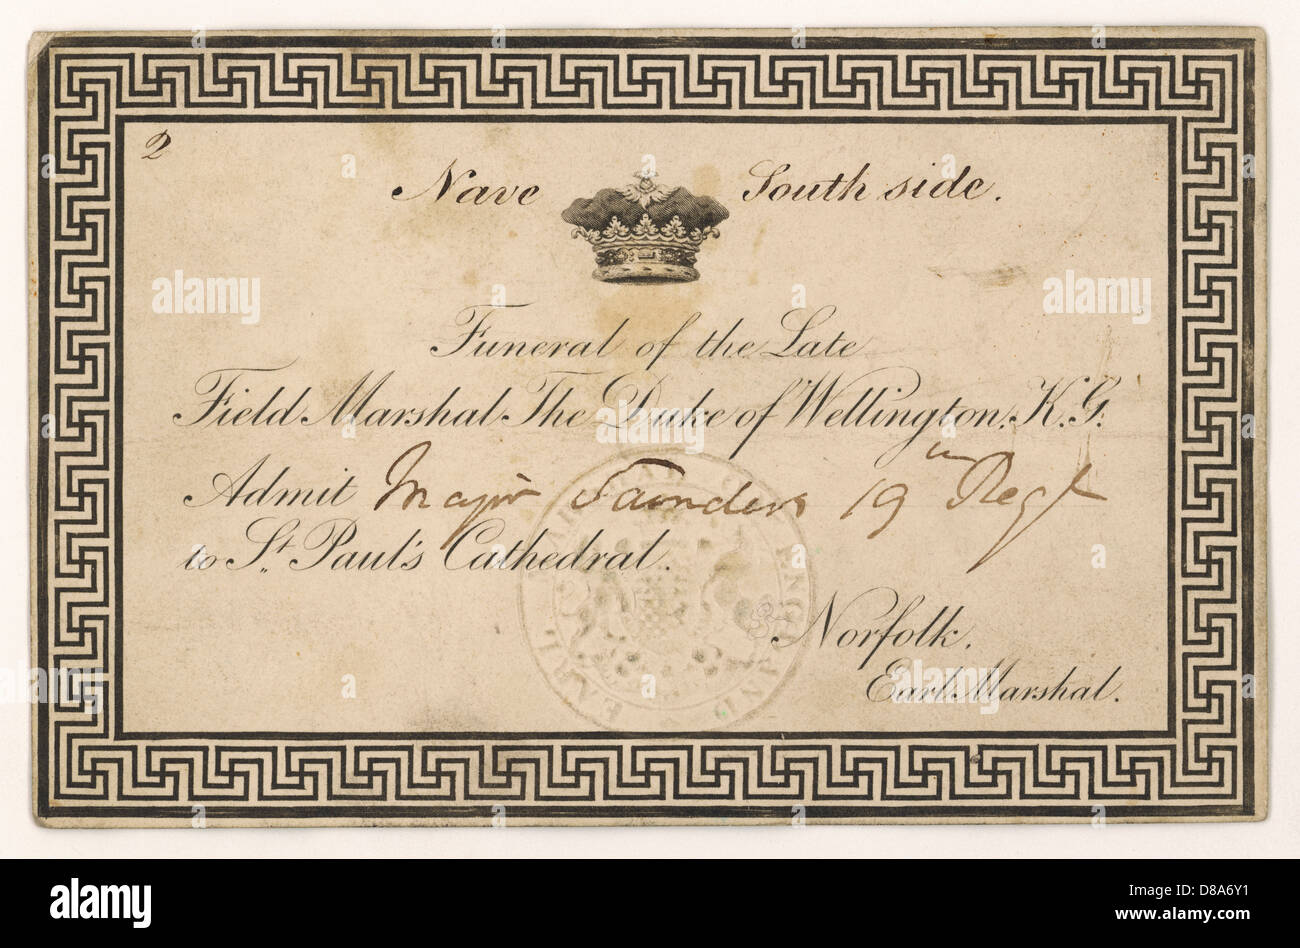 2
Nave South side.
Funeral of the Late
Field Marshal The Duke of Wellington, K.G.
Admit Major Saunders 19th Regt
to St. Paul's Cathedral.
EARL MARSHAL OF ENGLAND
Norfolk.
Earl Marshal.
alamy
a
alamy stock photo
D8A6Y1
www.alamy.com